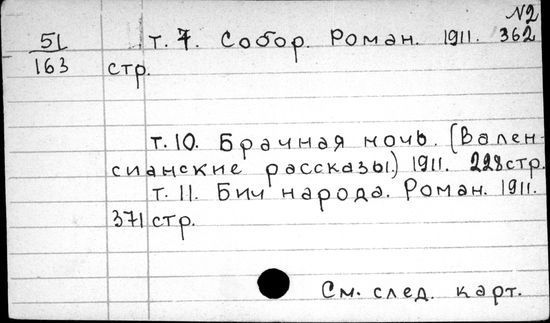 №2
51 т. 7. Собор. Роман. 1911. 362
163 стр.
т. 10. Брачная ночь. (Вален-
сианские рассказы.) 1911. 228 стр.
т. 11. Бич народа. Роман. 1911.
371 стр.
См. след. карт.